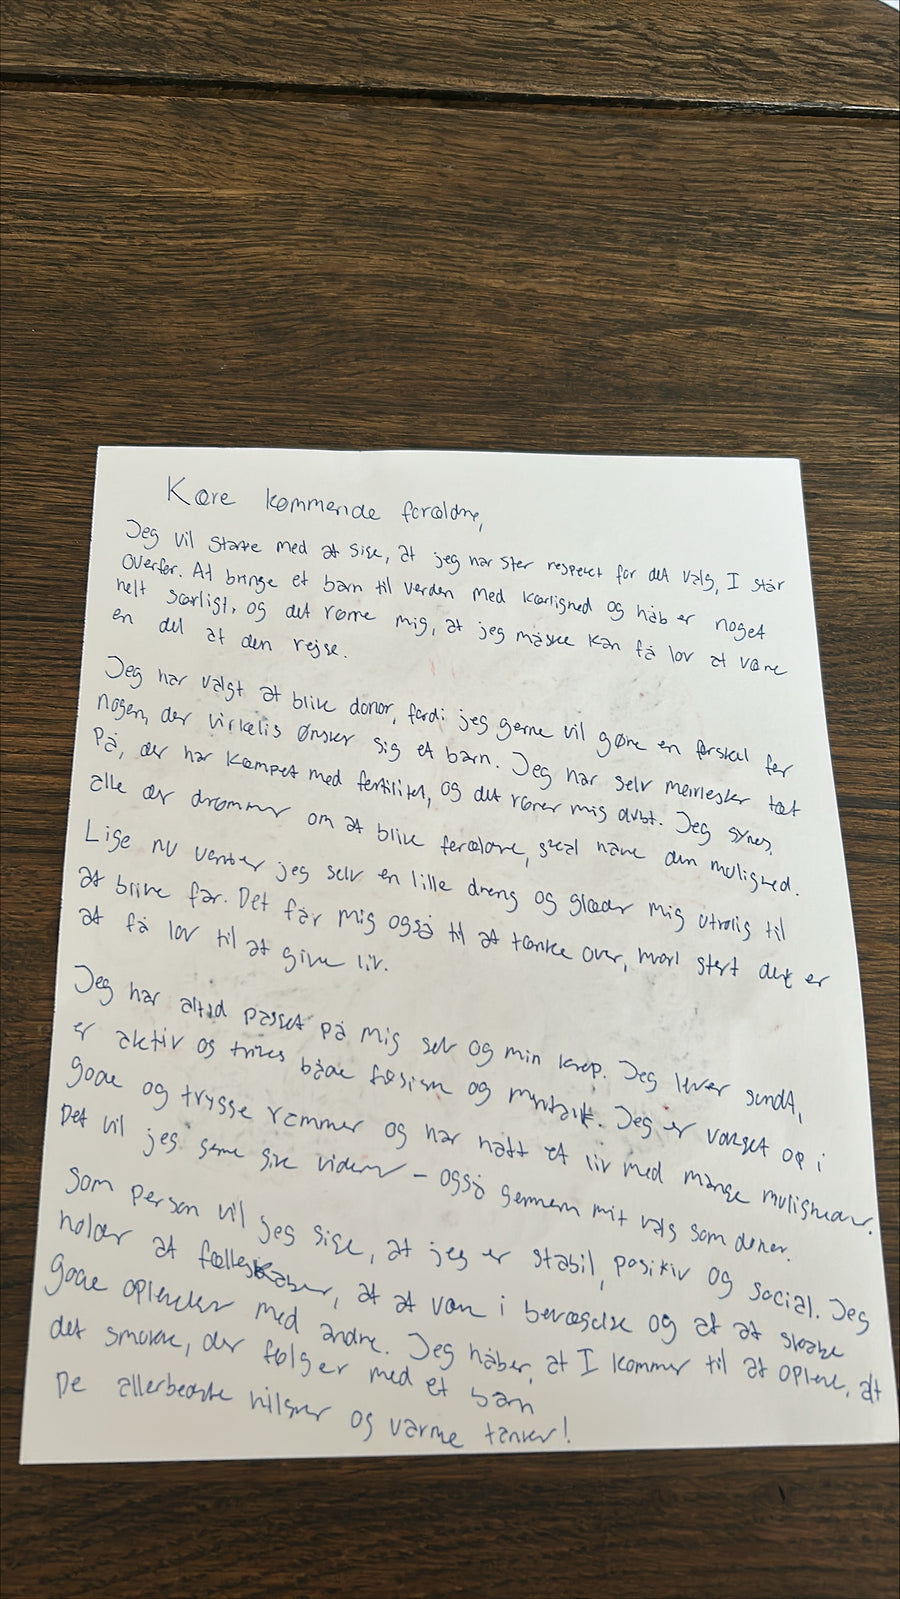 Kære kommende forældre,
Jeg vil starte med at sige, at jeg har stor respekt for det valg, I står
overfor. At bringe et barn til verden med kærlighed og håb er noget
helt særligt, og det rører mig, at jeg måske kan få lov at være
en del af den rejse.
Jeg har valgt at blive donor, fordi jeg gerne vil gøre en forskel for
nogen, der virkelig ønsker sig et barn. Jeg har selv mennesker tæt
på, der har kæmpet med fertilitet, og det rører mig dybt. Jeg synes,
alle der drømmer om at blive forældre, skal have den mulighed.
Lige nu venter jeg selv en lille dreng og glæder mig utrolig til
at blive far. Det får mig også til at tænke over, hvor stort det er
at få lov til at give liv.
Jeg har altid passet på mig selv og min krop. Jeg lever sundt,
er aktiv og trives både fysisk og mentalt. Jeg er vokset op i
gode og trygge rammer og har haft et liv med mange muligheder.
Det vil jeg gerne give videre – også gennem mit valg som donor.
Som person vil jeg sige, at jeg er stabil, positiv og social. Jeg
holder af fællesskaber, af at være i bevægelse og af at skabe
gode oplevelser med andre. Jeg håber, at I kommer til at opleve, alt
det smukke, der følger med et barn
De allerbedste hilsner og varme tanker!